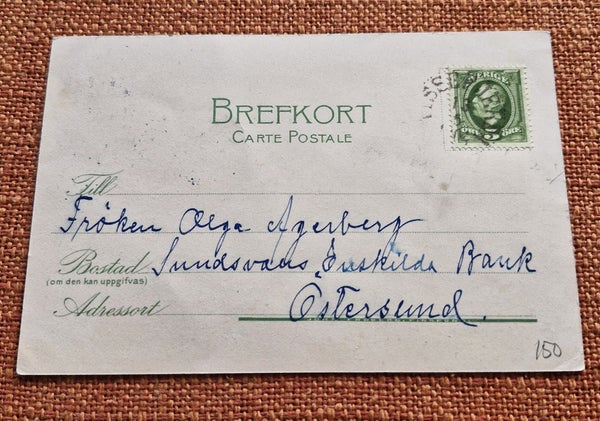 BREFKORT
CARTE POSTALE
SVERIGE
5
ÖRE ÖRE
Till
Fröken Olga Agerberg
Bostad Sundsvalls Enskilda Bank
(om den kan uppgifvas)
Adressort Östersund.
150